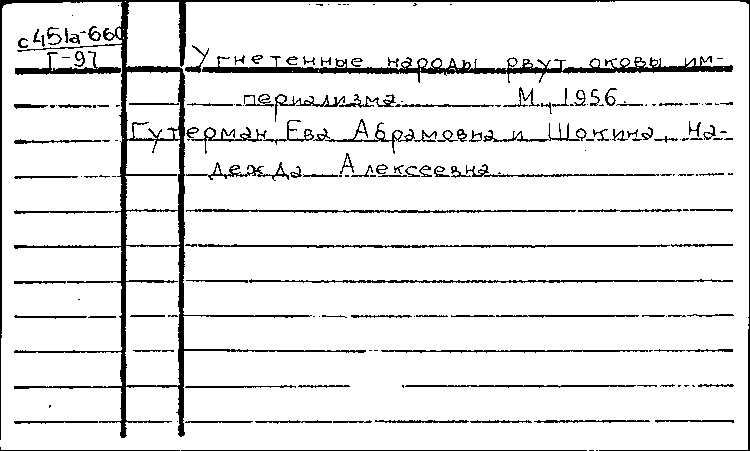 с451а-660
Г-97
Угнетенные народы рвут оковы им-
периализма. М., 1956.
Гутерман, Ева Абрамовна и Шокина, На-
дежда Алексеевна.